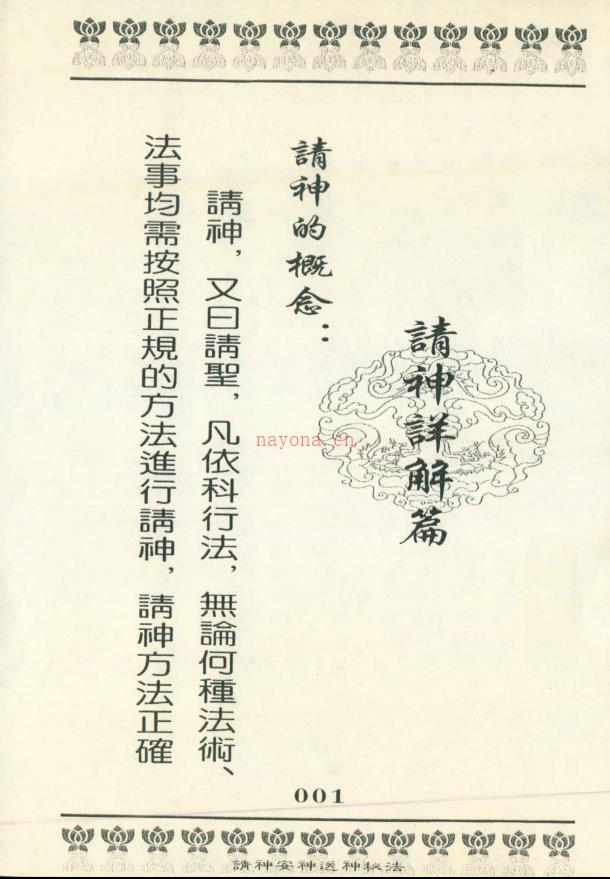 請神詳解篇
請神的概念：
請神，又曰請聖，凡依科行法，無論何種法術、
法事均需按照正規的方法進行請神，請神方法正確
nayona.cn
001
請神安神送神秘法